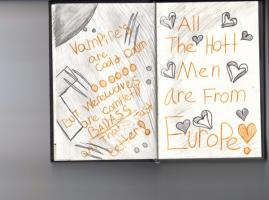 Vampire's
are
Cool Damn
But Werewolves
are Completly
BADASS
That's
better!
All
The Hott
Men
are From
Europe!